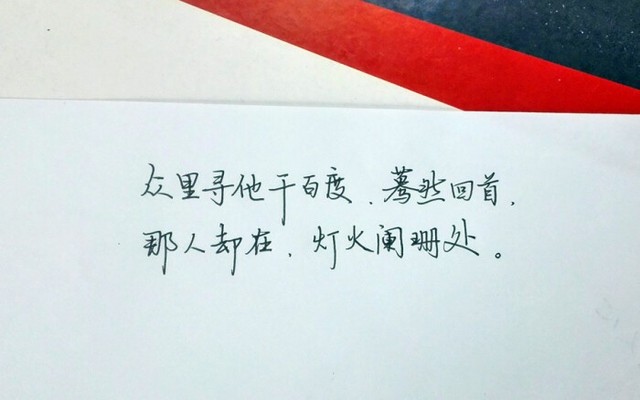 众里寻他千百度、蓦然回首，
那人却在、灯火阑珊处。